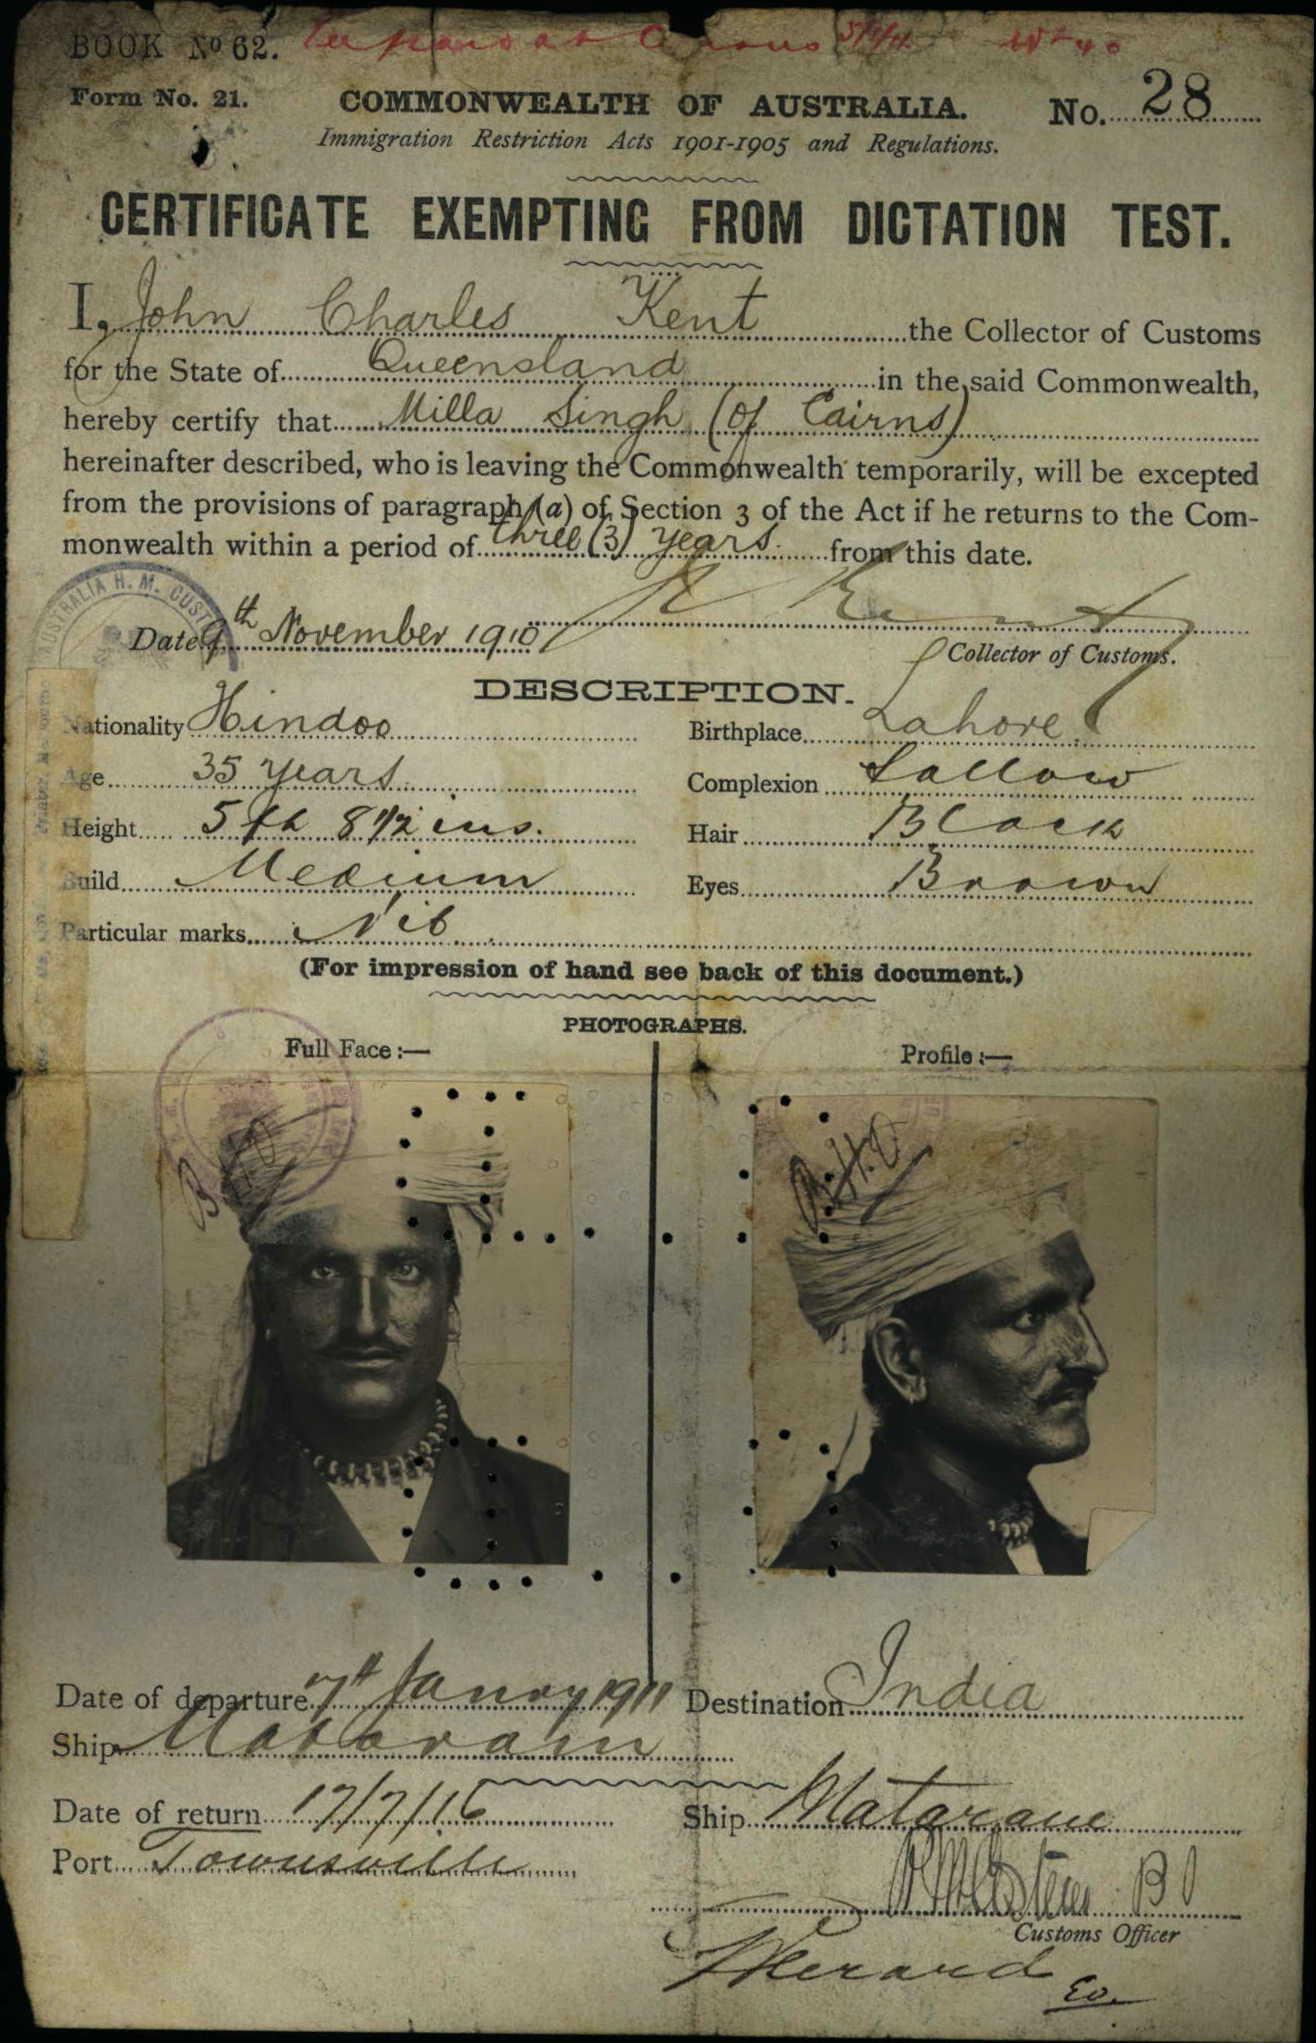 BOOK No 62.
Form No. 21.
COMMONWEALTH OF AUSTRALIA.
No. 28
Immigration Restriction Acts 1901-1905 and Regulations.
CERTIFICATE EXEMPTING FROM DICTATION TEST.
I, John Charles Kent the Collector of Customs
for the State of Queensland in the said Commonwealth,
hereby certify that Milla Singh (of Cairns)
hereinafter described, who is leaving the Commonwealth temporarily, will be excepted
from the provisions of paragraph (a) of Section 3 of the Act if he returns to the Com-
monwealth within a period of three (3) years from this date.
AUSTRALIA H. M. CUSTO
Date 9th November 1910
Collector of Customs.
DESCRIPTION.
Nationality Hindoo
Birthplace Lahore
Age 35 years
Complexion Sallow
Height 5 ft 8 1/2 ins.
Hair Black
Build Medium
Eyes Brown
Particular marks Nil
(For impression of hand see back of this document.)
PHOTOGRAPHS.
Full Face :—
Profile :—
Date of departure 7th Janry 1911
Destination India
Ship Mataram
Date of return 17/7/16
Ship Mataram
Port Townsville
Customs Officer